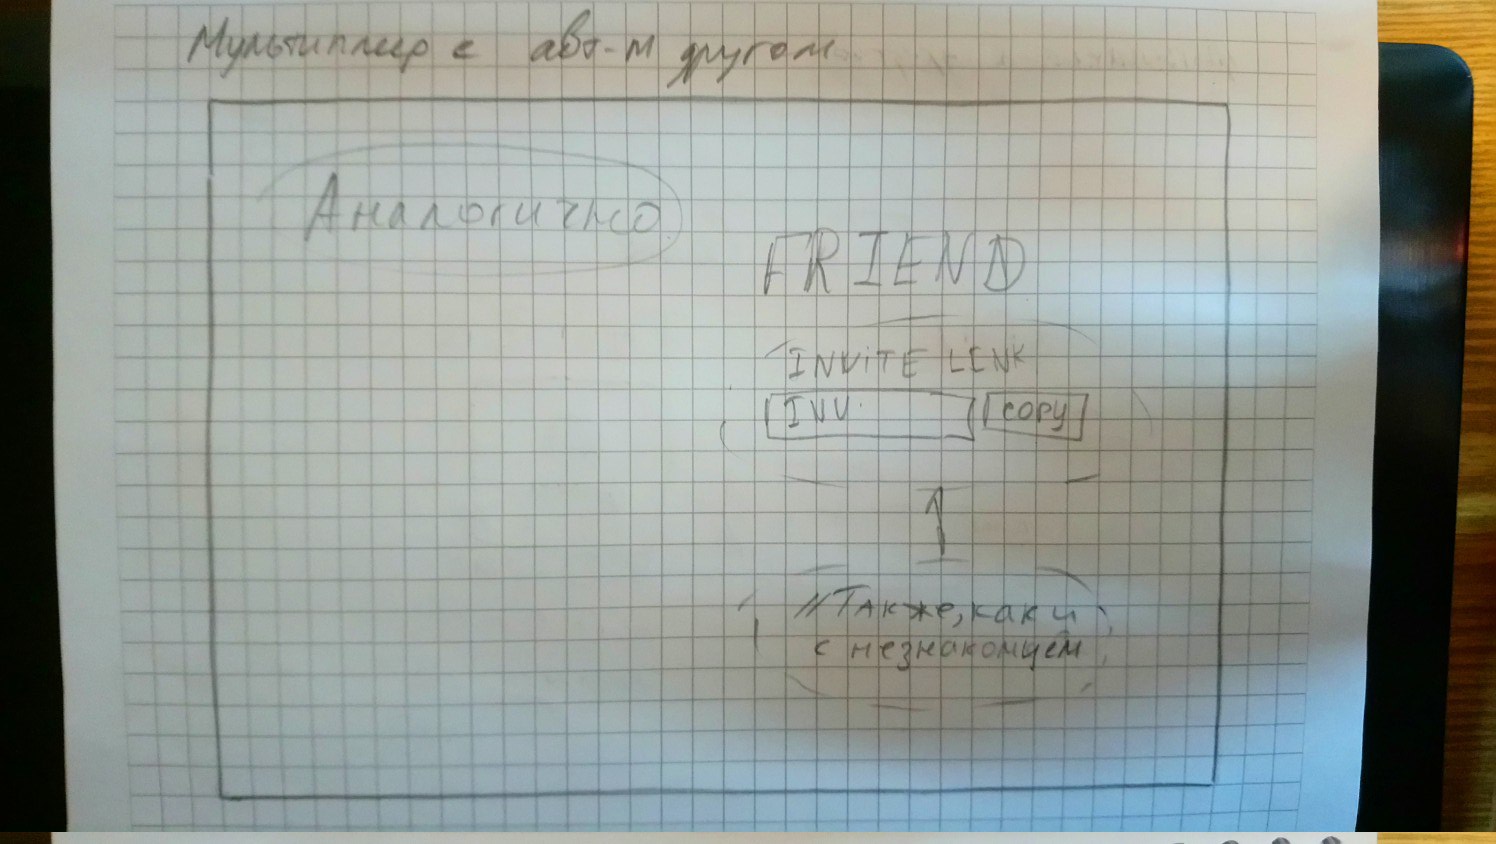 Мультиплеер с авт-м другом
Аналогично
FRIEND
INVITE LINK
INV. COPY
// Также, как и
с незнакомцем